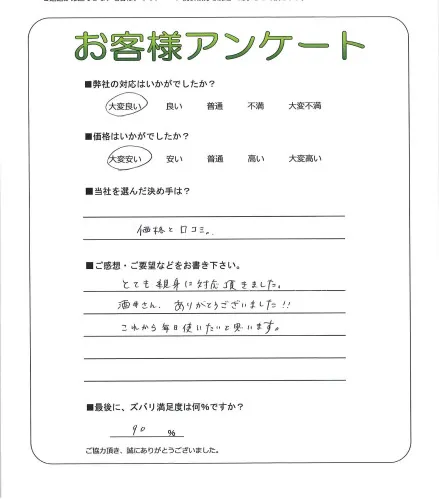 お客様アンケート
■弊社の対応はいかがでしたか？
大変良い 良い 普通 不満 大変不満
■価格はいかがでしたか？
大変安い 安い 普通 高い 大変高い
■当社を選んだ決め手は？
価格と口コミ。
■ご感想・ご要望などをお書き下さい。
とても親身に対応頂きました。
酒井さん、ありがとうございました!!
これから毎日使いたいと思います。
■最後に、ズバリ満足度は何％ですか？
90 %
ご協力頂き、誠にありがとうございました。